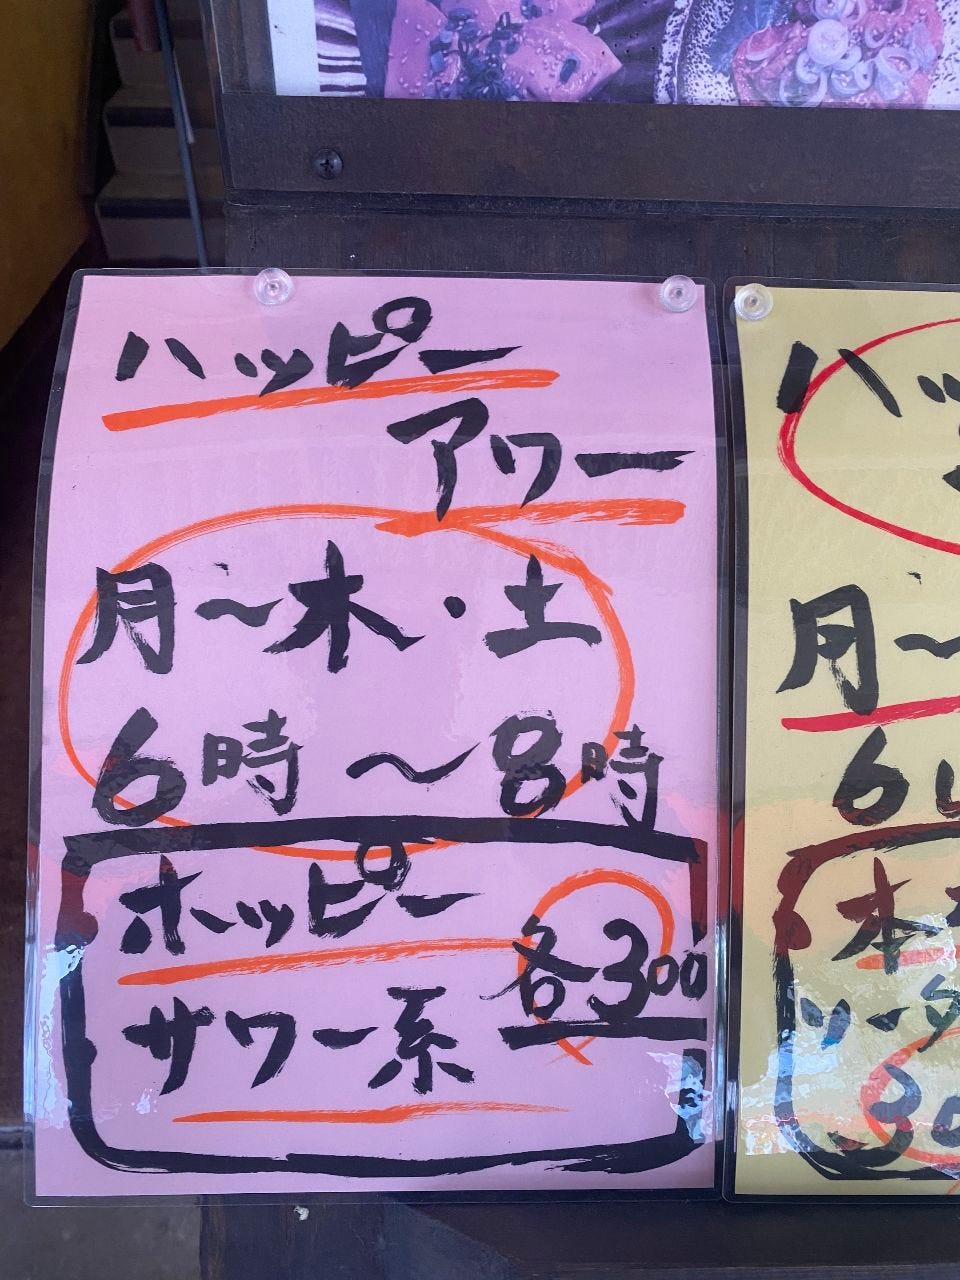 ハッピー
アワー
月〜木・土
6時〜8時
ホッピー
各300
サワー系
ハッ
月〜
6
ソーダ
30